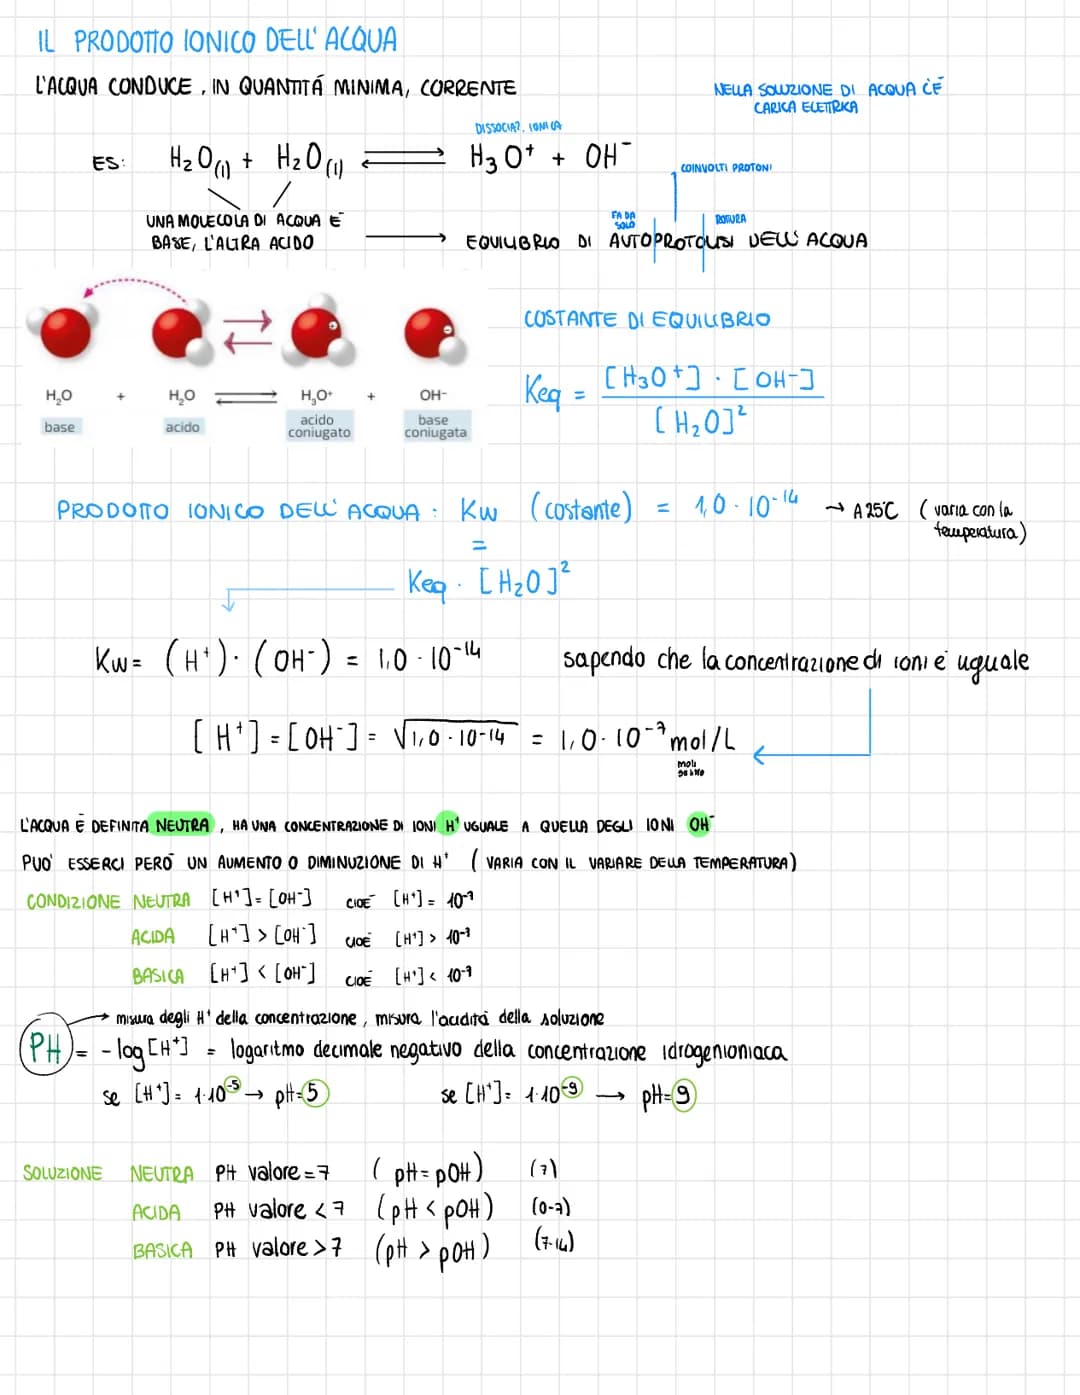 IL PRODOTTO IONICO DELL'ACQUA
L'ACQUA CONDUCE, IN QUANTITÁ MINIMA, CORRENTE
NELLA SOLUZIONE DI ACQUA C'É
CARICA ELETTRICA
DISSOCIAZ. IONICA
ES: H₂O(l) + H₂O(l) ⇌ H₃O⁺ + OH⁻
COINVOLTI PROTONI
UNA MOLECOLA DI ACQUA É
BASE, L'ALTRA ACIDO
FA DA
SOLO
ROTURA
→ EQUILIBRIO DI AUTOPROTOLISI DELL'ACQUA
H₂O + H₂O ⇌ H₃O⁺ + OH-
base acido acido coniugato base coniugata
COSTANTE DI EQUILIBRIO
Keq = [H₃O⁺] · [OH⁻] / [H₂O]²
PRODOTTO IONICO DELL'ACQUA: Kw (costante) = 1,0 · 10⁻¹⁴ → A 25°C (varia con la
temperatura)
=
Keq · [H₂O]²
Kw = (H⁺) · (OH⁻) = 1,0 · 10⁻¹⁴ sapendo che la concentrazione di ioni é uguale
[H⁺] = [OH⁻] = √1,0 · 10-14 = 1,0 · 10⁻⁷ mol/L
moli
L'ACQUA É DEFINITA NEUTRA, HA UNA CONCENTRAZIONE DI IONI H⁺ UGUALE A QUELLA DEGLI IONI OH⁻
PUO' ESSERCI PERÓ UN AUMENTO O DIMINUZIONE DI H⁺ (VARIA CON IL VARIARE DELLA TEMPERATURA)
CONDIZIONE NEUTRA [H⁺] = [OH⁻] CIOÉ [H⁺] = 10⁻⁷
ACIDA [H⁺] > [OH⁻] CIOÉ [H⁺] > 10⁻⁷
BASICA [H⁺] < [OH⁻] CIOÉ [H⁺] < 10⁻⁷
→ misura degli H⁺ della concentrazione, misura l'acidità della soluzione
PH = -log [H⁺] = logaritmo decimale negativo della concentrazione idrogenioniaca
se [H⁺] = 1·10⁻⁵ → pH=5 se [H⁺] = 1·10⁻⁹ → pH=9
SOLUZIONE NEUTRA PH valore = 7 (pH = pOH) (7)
ACIDA PH valore < 7 (pH < pOH) (0-7)
BASICA PH valore > 7 (pH > pOH) (7-14)